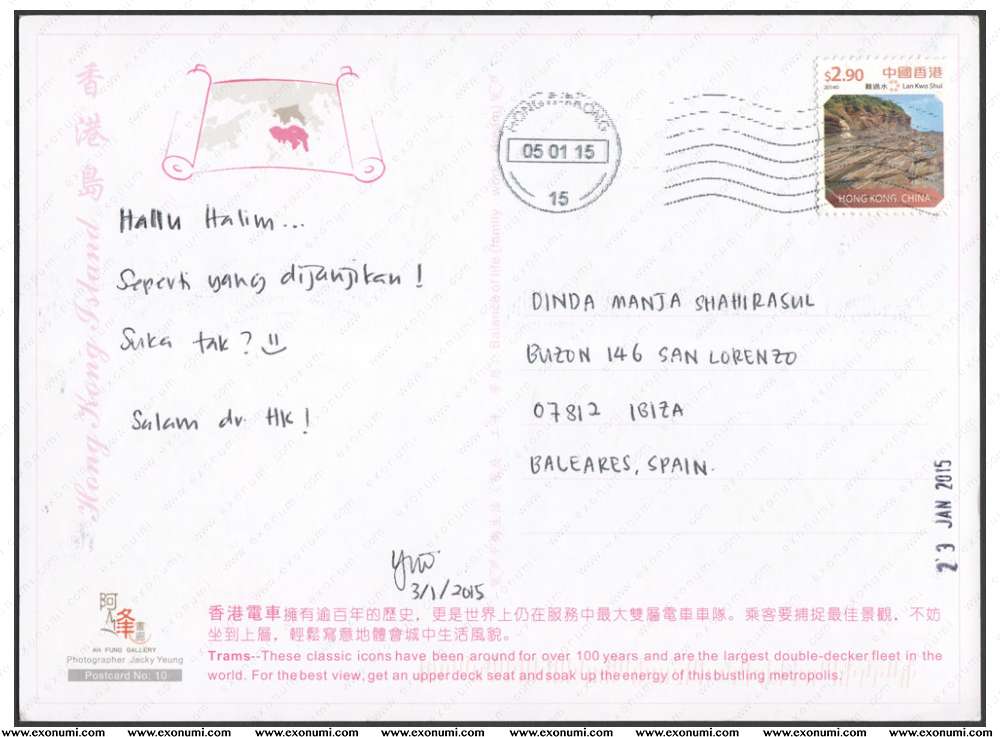 香港島 Hong Kong Island
HONG KONG
05 01 15
15
$2.90 中國香港
Lan Kwo Shui
HONG KONG, CHINA
Hallu Halim...
Seperti yang dijanjikan!
Suka tak?
Salam dr. HK!
3/1/2015
DINDA MANJA SHAHIRASUL
BUZON 146 SAN LORENZO
07812 IBIZA
BALEARES, SPAIN.
23 JAN 2015
AH FUNG GALLERY
Photographer Jacky Yeung
Postcard No: 10
香港電車擁有逾百年的歷史，更是世界上仍在服務中最大雙層電車車隊。乘客要捕捉最佳景觀，不妨
坐到上層，輕鬆寫意地體會城中生活風貌。
Trams--These classic icons have been around for over 100 years and are the largest double-decker fleet in the
world. For the best view, get an upper deck seat and soak up the energy of this bustling metropolis.
www.exonumi.com www.exonumi.com www.exonumi.com www.exonumi.com www.exonumi.com www.exonumi.com www.exonumi.com www.exonumi.com